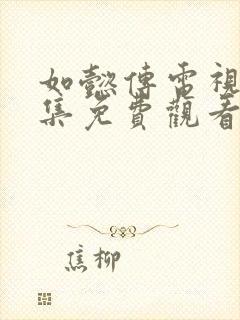 如懿傳電視
集免費觀看
焦柳